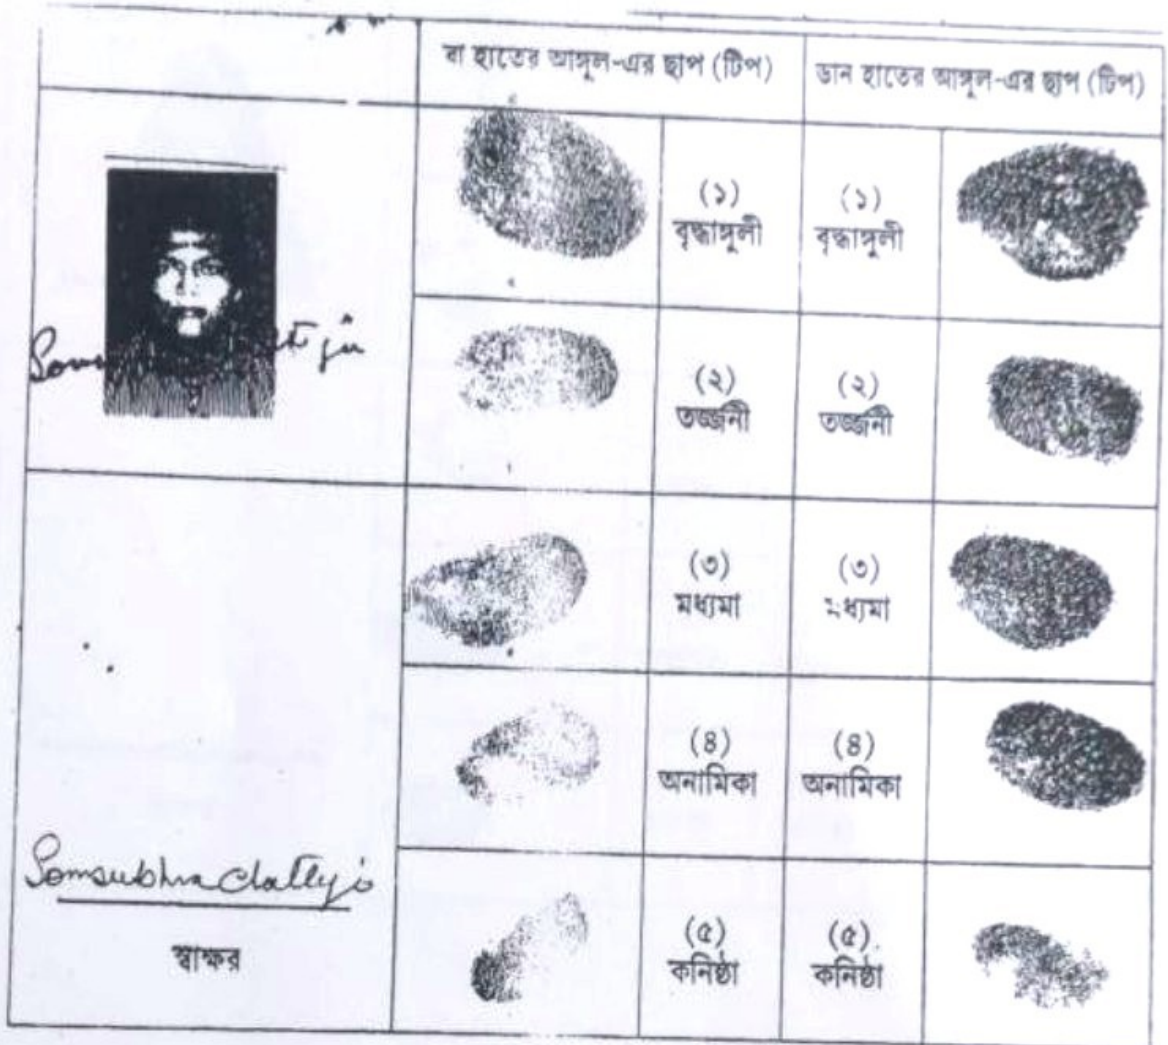 বা হাতের আঙ্গুল-এর ছাপ (টিপ)
ডান হাতের আঙ্গুল-এর ছাপ (টিপ)
(১)
বৃদ্ধাঙ্গুলী
(১)
বৃদ্ধাঙ্গুলী
(২)
তর্জ্জনী
(২)
তর্জ্জনী
(৩)
মধ্যমা
(৩)
মধ্যমা
(৪)
অনামিকা
(৪)
অনামিকা
Somsubhra
(৫)
কনিষ্ঠা
(৫)
কনিষ্ঠা
স্বাক্ষর